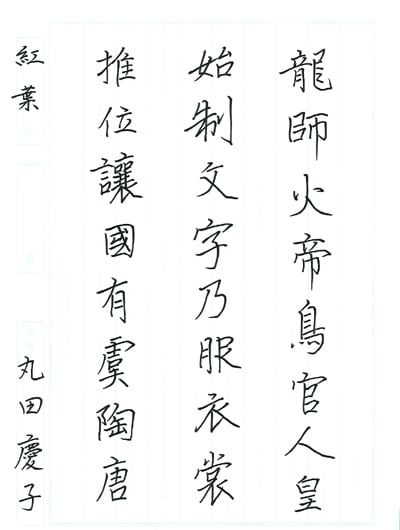 龍師火帝鳥官人皇
始制文字乃服衣裳
推位讓國有虞陶唐
紅葉 丸田慶子